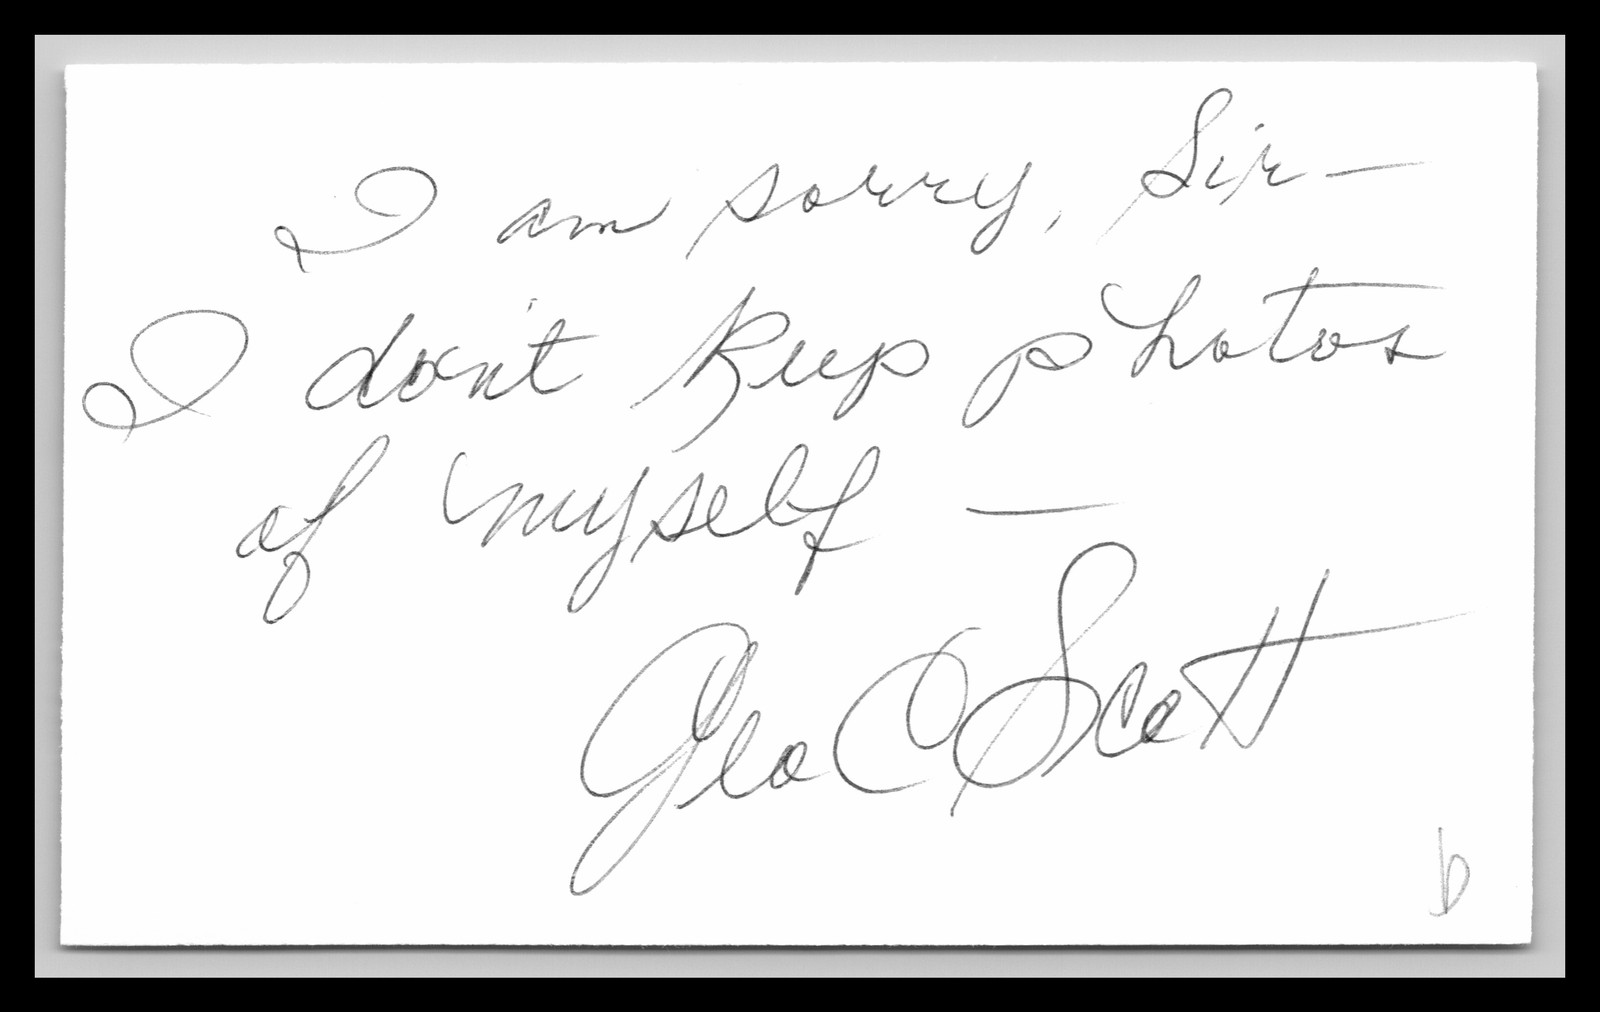 I am sorry, Sir —
I don't keep photos
of myself —
Geo C Scott
b